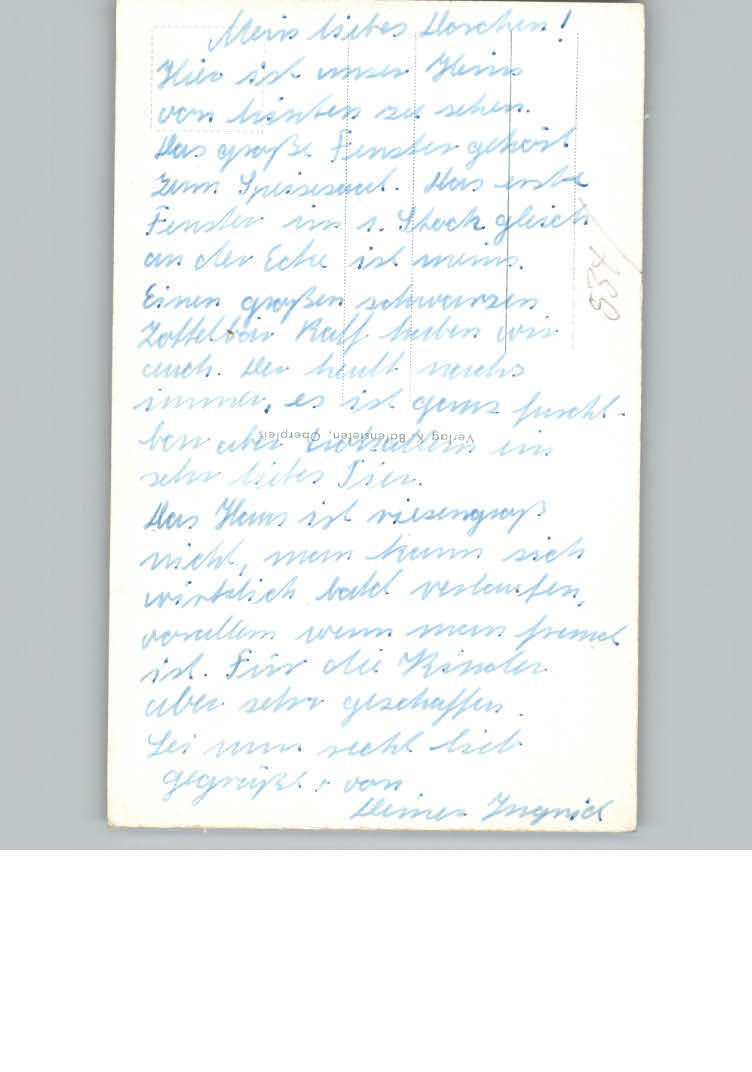 Mein liebes Dorchen!
Hier ist unser Heim
von hinten zu sehen.
Das große Fenster gehört
zum Speisesaal. Das erste
Fenster im 1. Stock gleich
an der Ecke ist meins.
Einen großen schwarzen
Zottelbär Ralf haben wir
auch. Der heult nachts
immer, es ist ganz furcht-
bar aber trotzallem ein
sehr liebes Tier.
Das Haus ist riesengroß
nicht, man kann sich
wirklich bald verlaufen,
vorallem wenn man fremd
ist. Für die Kinder
aber sehr geschaffen.
Sei nun recht lieb
gegrüßt von
Deiner Ingrid
Verlag K. Barensteten, Oberpleis
834